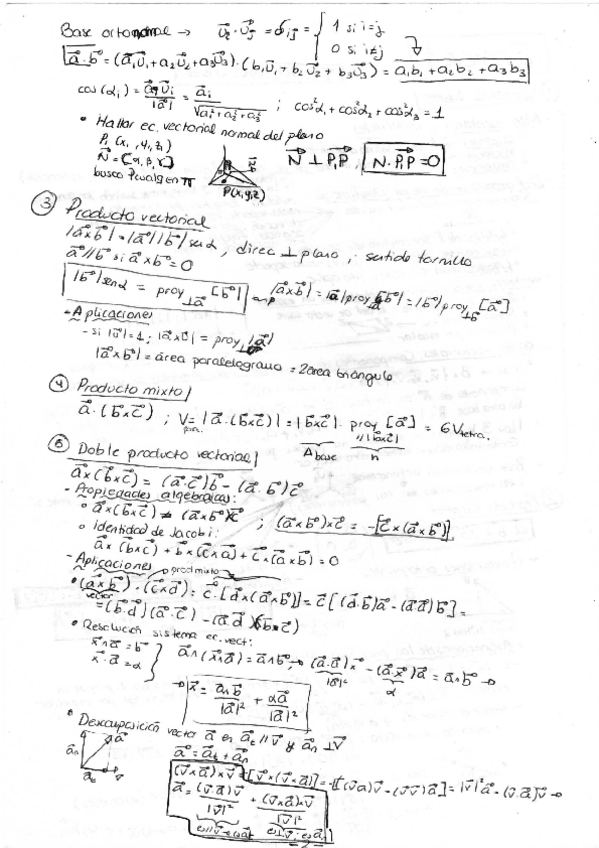 Base ortonormal → u⃗ᵢ · u⃗ⱼ = δᵢⱼ = { 1 si i=j
0 si i≠j
a⃗ · b⃗ = (a₁u⃗₁ + a₂u⃗₂ + a₃u⃗₃) · (b₁u⃗₁ + b₂u⃗₂ + b₃u⃗₃) = a₁b₁ + a₂b₂ + a₃b₃
cos(αᵢ) = a⃗ · u⃗ᵢ / |a⃗| = aᵢ / √(a₁² + a₂² + a₃²) ; cos²α₁ + cos²α₂ + cos²α₃ = 1
• Hallar ec. vectorial normal del plano
P₁ (x₁, y₁, z₁)
N⃗ = (α, β, γ)
N⃗ ⊥ P₁P⃗ , N⃗ · P₁P⃗ = 0
busco P en π
P(x,y,z)
③ Producto vectorial
|a⃗ x b⃗| = |a⃗| |b⃗| sen α , direc ⊥ plano ; sentido tornillo
a⃗ // b⃗ si a⃗ x b⃗ = 0
|b⃗| sen α = proy ⊥a⃗ [b⃗] → |a⃗ x b⃗| = |a⃗| proy ⊥a⃗ [b⃗] = |b⃗| proy ⊥b⃗ [a⃗]
- Aplicaciones
- si |u⃗| = 1 ; |a⃗ x u⃗| = proy ⊥ |a⃗|
|a⃗ x b⃗| = área paralelogramo = 2 área triángulo
④ Producto mixto
a⃗ · (b⃗ x c⃗) ; V = |a⃗ · (b⃗ x c⃗)| = |b⃗ x c⃗| · proy [a⃗] = 6 V tetra.
// |b⃗ x c⃗|
A base h
⑤ Doble producto vectorial
a⃗ x (b⃗ x c⃗) = (a⃗ · c⃗) b⃗ - (a⃗ · b⃗) c⃗
- Propiedades algebraicas:
• a⃗ x (b⃗ x c⃗) ≠ (a⃗ x b⃗) x c⃗ ; (a⃗ x b⃗) x c⃗ = -[c⃗ x (a⃗ x b⃗)]
• identidad de Jacobi:
a⃗ x (b⃗ x c⃗) + b⃗ x (c⃗ x a⃗) + c⃗ x (a⃗ x b⃗) = 0
- Aplicaciones → prod mixto
• (a⃗ x b⃗) · (c⃗ x d⃗) = c⃗ · [d⃗ x (a⃗ x b⃗)] = c⃗ [(d⃗ · b⃗) a⃗ - (d⃗ · a⃗) b⃗] =
vector
= (b⃗ · d⃗) (a⃗ · c⃗) - (a⃗ · d⃗) (b⃗ · c⃗)
• Resolución sistema ec. vect:
x⃗ ∧ a⃗ = b⃗
x⃗ · a⃗ = α
} a⃗ ∧ (x⃗ ∧ a⃗) = a⃗ ∧ b⃗ → (a⃗ · a⃗) x⃗ - (a⃗ · x⃗) a⃗ = a⃗ ∧ b⃗ →
|a⃗|² α
→ x⃗ = a⃗ ∧ b⃗ / |a⃗|² + α a⃗ / |a⃗|²
• Descomposición vector a⃗ en a⃗ₜ // v⃗ y a⃗ₙ ⊥ v⃗
a⃗ = a⃗ₜ + a⃗ₙ
(v⃗ x a⃗) x v⃗ = -[v⃗ x (v⃗ x a⃗)] = -[(v⃗ a⃗) v⃗ - (v⃗ v⃗) a⃗] = |v⃗|² a⃗ - (v⃗ · a⃗) v⃗ →
a⃗ = (v⃗ · a⃗) v⃗ / |v⃗|² + (v⃗ x a⃗) x v⃗ / |v⃗|²